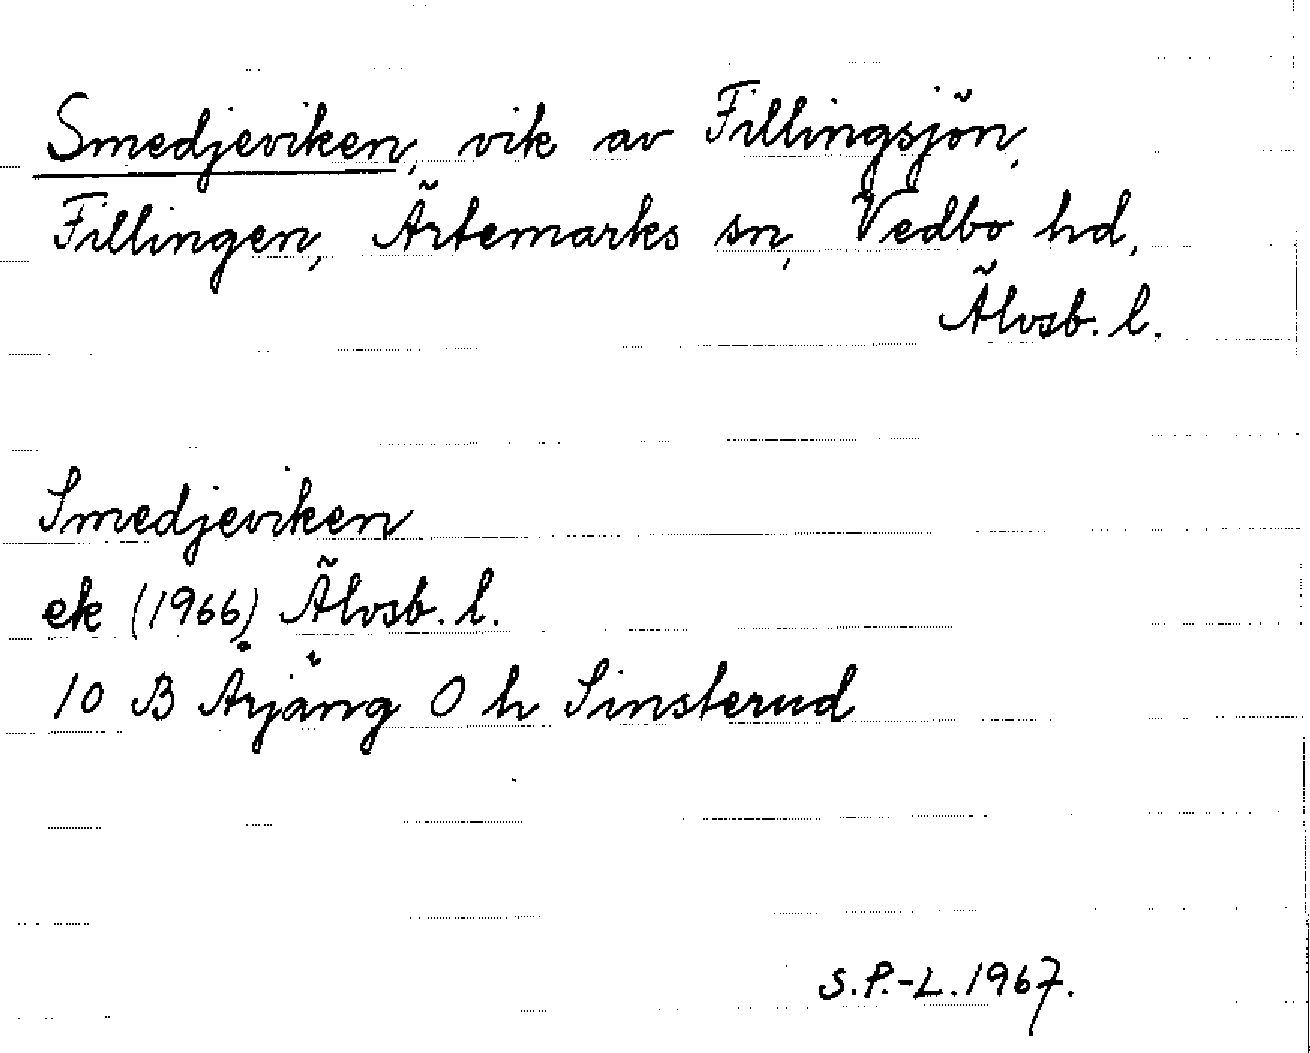 Smedjeviken, vik av Fillingsjön,
Fillingen, Ärtemarks sn, Vedbo hd,
Älvsb. l.
Smedjeviken
ek (1966) Älvsb. l.
10 B Årjäng O h Sinsterud
S.P.-L. 1967.